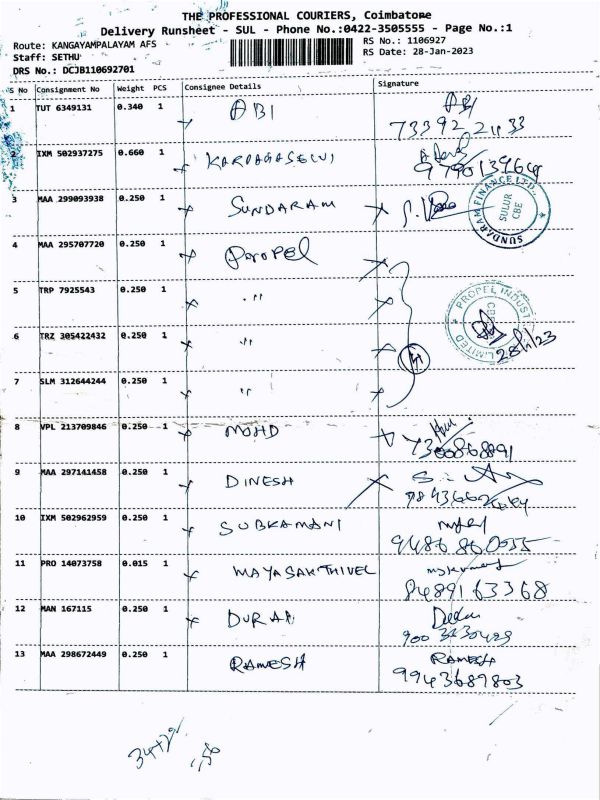 THE PROFESSIONAL COURIERS, Coimbatore
Delivery Runsheet - SUL - Phone No.:0422-3505555 - Page No.:1
Route: KANGAYAMPALAYAM AFS
RS No.: 1106927
Staff: SETHU
RS Date: 28-Jan-2023
DRS No.: DCJB110692701
S No Consignment No Weight PCS Consignee Details Signature
1 TUT 6349131 0.340 1 ABI ABI
IXM 502937275 0.660 1 KARPAGASELVI
3 MAA 299093938 0.250 1 SUNDARAM
SUNDARAM FINANCE LTD.,
SULUR
CBE
4 MAA 295707720 0.250 1 PROPEL
5 TRP 7925543 0.250 1 "
PROPEL INDUST
LIMITED
28/1/23
6 TRZ 305422432 0.250 1 "
7 SLM 312644244 0.250 1 "
8 VPL 213709846 0.250 1 MOHD
9 MAA 297141458 0.250 1 DINESH
10 IXM 502962959 0.250 1 SUBRAMANI
11 PRO 14073758 0.015 1 MAYASAKTHIVEL
8489163368
12 MAN 167115 0.250 1 DURAI
13 MAA 298672449 0.250 1 RAMESH RAMESH
9943689803